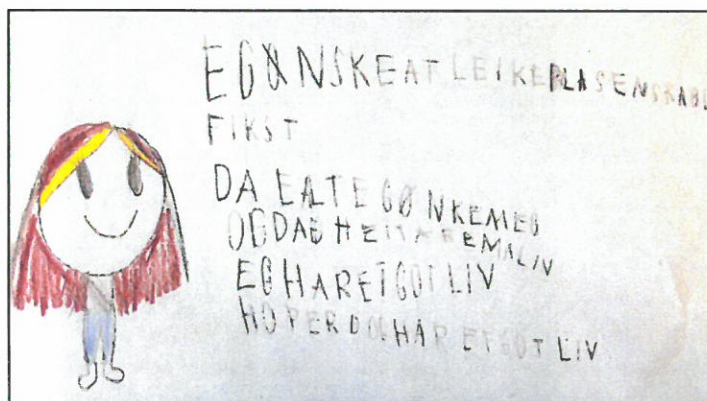 EGØNSKE AT LEIKEPLASEN SKABL
FIKST
DA EALT EGØNKEMEG
OG DAG HEITAREMALIV
EG HAR ET GOT LIV
HOPER DO. HAR ET GOT LIV